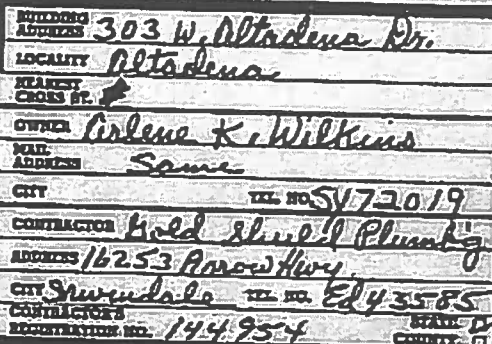 BUILDING ADDRESS 303 W. Altadena Dr.
LOCALITY Altadena
NEAREST CROSS ST.
OWNER Arlene K. Wilkins
MAIL ADDRESS Same
CITY TEL. NO. 5472019
CONTRACTOR Gold Shield Plumb'g
ADDRESS 16253 Arrow Hwy.
CITY Irwindale TEL. NO. Ed 43585
CONTRACTOR'S REGISTRATION NO. 144954 STATE
COUNTY